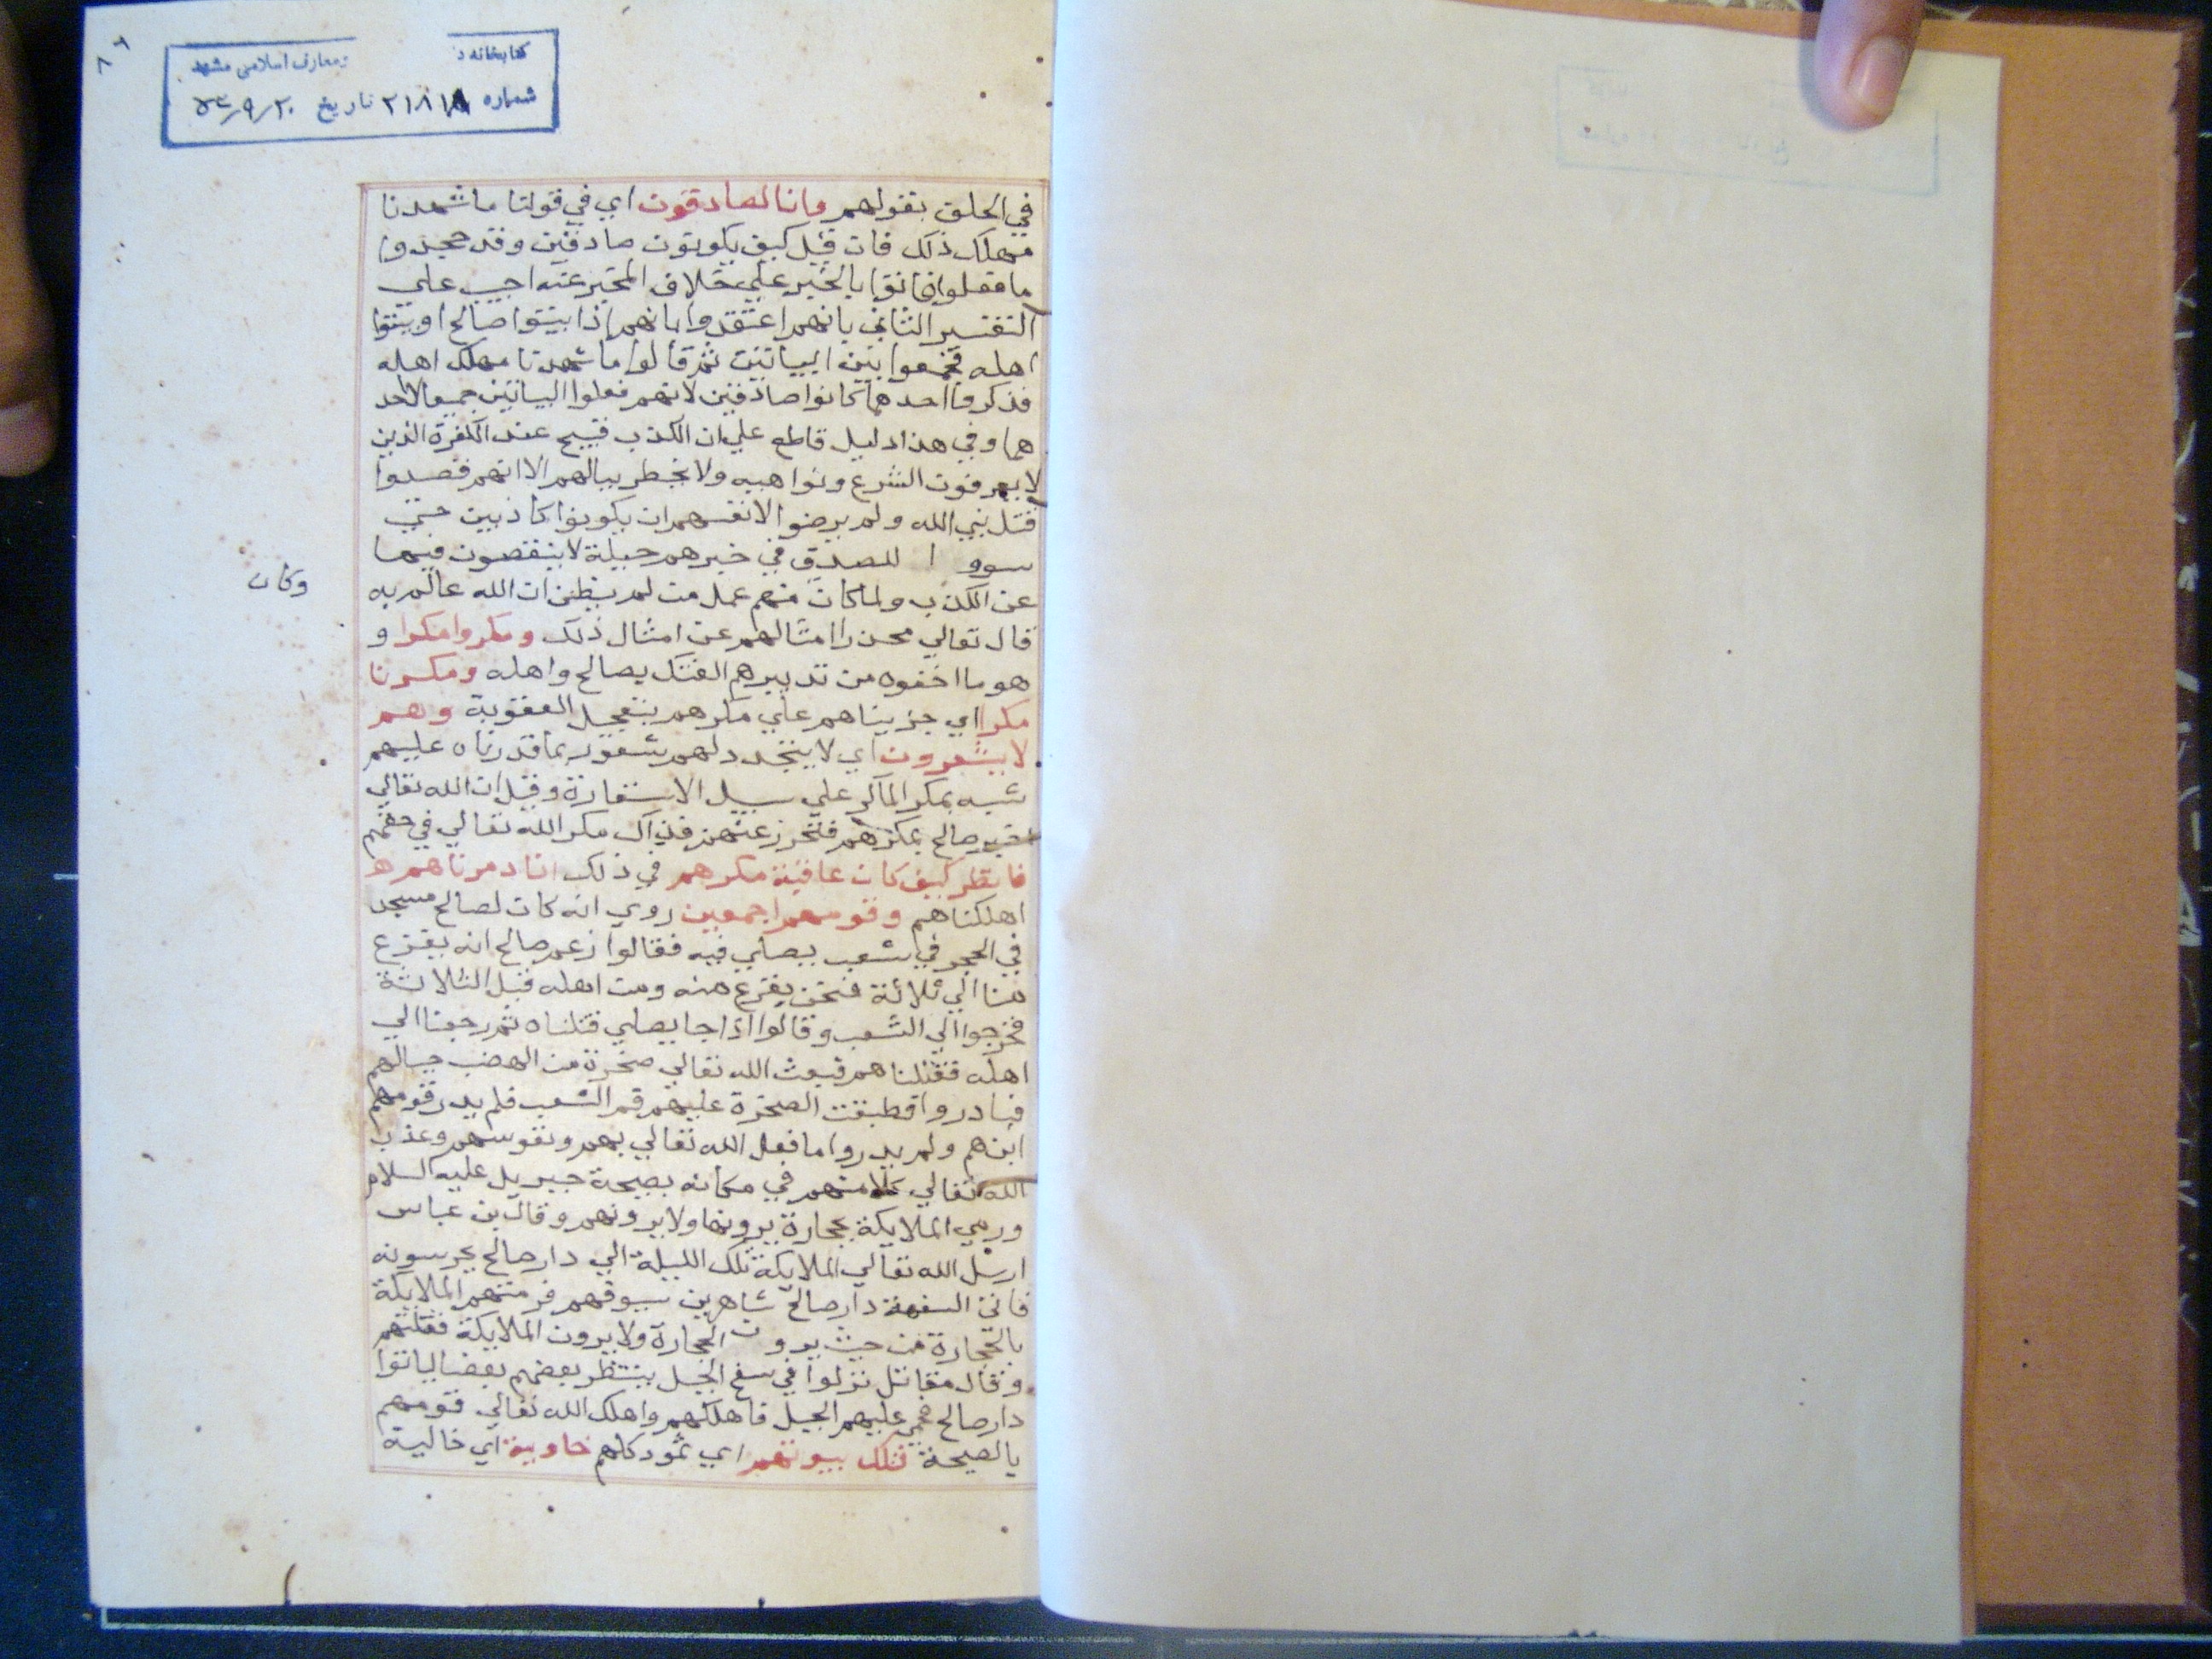 ٨٦
كتابخانه د ومعارف اسلامى مشهد
شماره ٢١٨١٨ تاريخ ٥٣/٩/٢٠
في الحلق بقولهم وانا لصادقون اي في قولنا ما شهدنا
مهلك ذلك فان قيل كيف يكونون صادقين وقد جحدوا
ما فعلوا فاتوا بالخبر علي خلاف المخبر عنه اجيب علي
التفسير الثاني بانهم اعتقدوا بانهم اذا بيتوا صالح او بيتوا
اهله فجمعوا بين البياتين ثم قالوا ما شهدنا مهلك اهله
فذكروا احدهما كانوا صادقين لانهم فعلوا البياتين جميعا لا احد
هما وفي هذا دليل قاطع علي ان الكذب قبيح عند الكفرة الذين
لا يعرفون الشرع ونواهيه ولا يخطر ببالهم الا انهم قصدوا
قتل نبي الله ولم يرضوا لانفسهم ان يكونوا كاذبين حتي
سووا للصدق في خبرهم حيلة لا ينقصون فيها
عن الكذب ولما كان منهم عمل من لم يظن ان الله عالم به
وكان
قال تعالي محذرا امثالهم عن امثال ذلك ومكروا مكرا و
هو ما اخفوه من تدبيرهم الفتك بصالح واهله ومكرنا
مكرا اي جزيناهم علي مكرهم بتعجيل العقوبة وهم
لا يشعرون اي لا يتجدد لهم شعور بما قدرناه عليهم
شبه بمكر الماكر علي سبيل الاستعارة وقيل ان الله تعالي
اخبر صالح بمكرهم فتحرز عنهم فذاك مكر الله تعالي في حقهم
فانظر كيف كان عاقبة مكرهم في ذلك انا دمرناهم
اهلكناهم وقومهم اجمعين روي انه كان لصالح مسجد
في الحجر في شعب يصلي فيه فقالوا زعم صالح انه يفزع
منا الي ثلاثة فنحن نفزع منه ومن اهله قبل الثلاثة
فخرجوا الي الشعب وقالوا اذا جا يصلي قتلناه ثم رجعنا الي
اهله فقتلناهم فبعث الله تعالي صخرة من الهضب حيالهم
فبادروا فطبقت الصخرة عليهم فم الشعب فلم يدر قومهم
اين هم ولم يدروا ما فعل الله تعالي بهم وبقومهم وعذب
الله تعالي كلا منهم في مكانه بصيحة جبريل عليه السلام
ورمي الملايكة بحجارة يرونها ولا يرونهم وقال بن عباس
ارسل الله تعالي الملايكة تلك الليلة الي دار صالح يحرسونه
فاتي السفهة دار صالح شاهرين سيوفهم فرمتهم الملايكة
بالحجارة من حيث يرون الحجارة ولا يرون الملايكة فقتلتهم
وقال مقاتل نزلوا في سفح الجبل ينتظر بعضهم بعضا لياتوا
دار صالح فجثم عليهم الجبل فاهلكهم واهلك الله تعالي قومهم
بالصيحة فتلك بيوتهم اي ثمود كلهم خاوية اي خالية